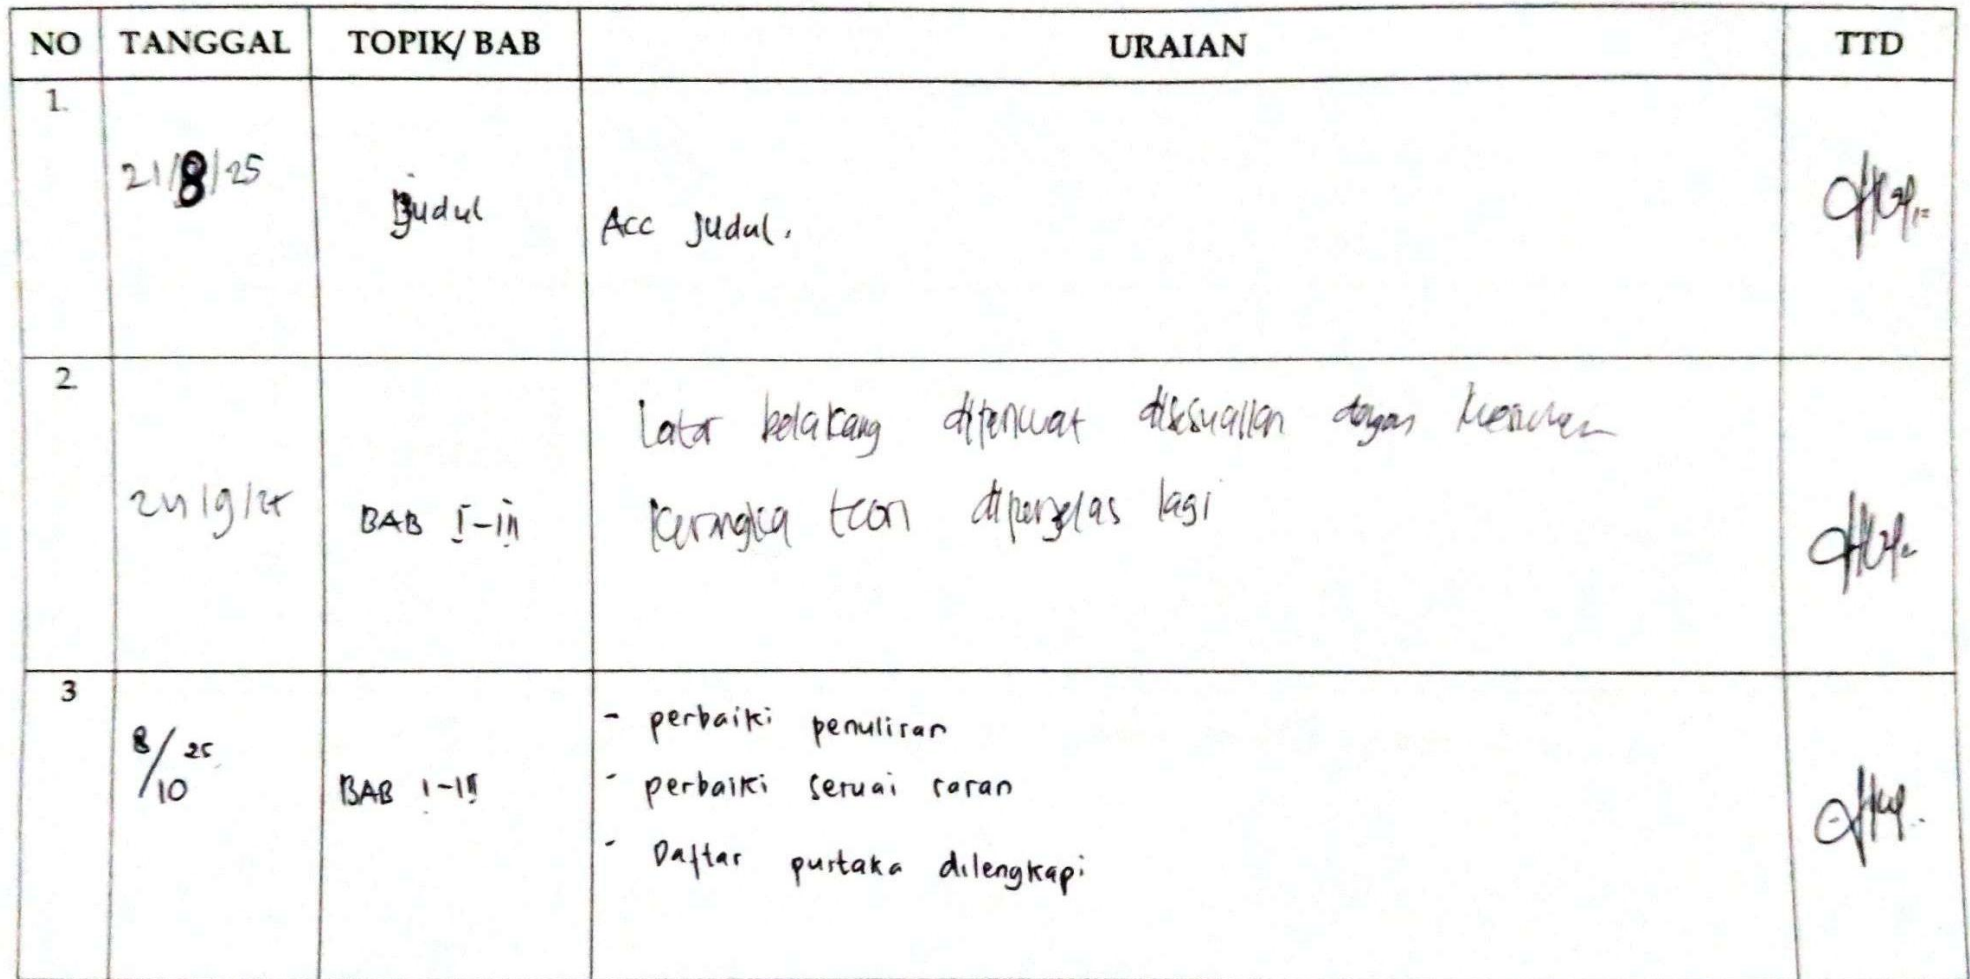 NO TANGGAL TOPIK/ BAB URAIAN TTD
1.
21/8/25 Judul Acc Judul.
2.
Latar belakang diperkuat disesuaikan dengan
24/9/25 BAB I-III Kerangka teori diperjelas lagi
3
8/10 25 BAB I-III
- perbaiki penulisan
- perbaiki sesuai saran
- Daftar pustaka dilengkapi